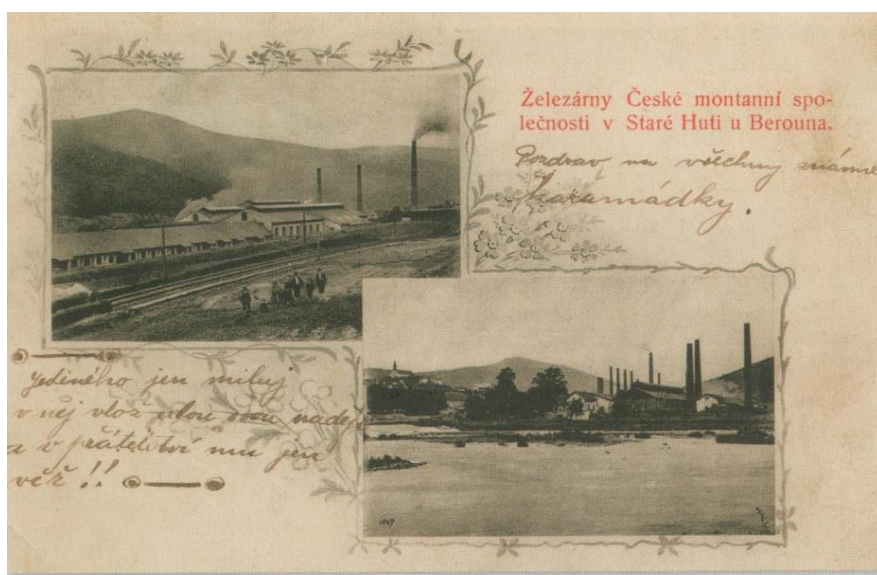 Železárny České montanní spo-
lečnosti v Staré Huti u Berouna.
Pozdrav na všechny známé
kaamádky.
Jediného jen miluj
v něj vlož svou naděj
a v přátelství mu jen
věř!!